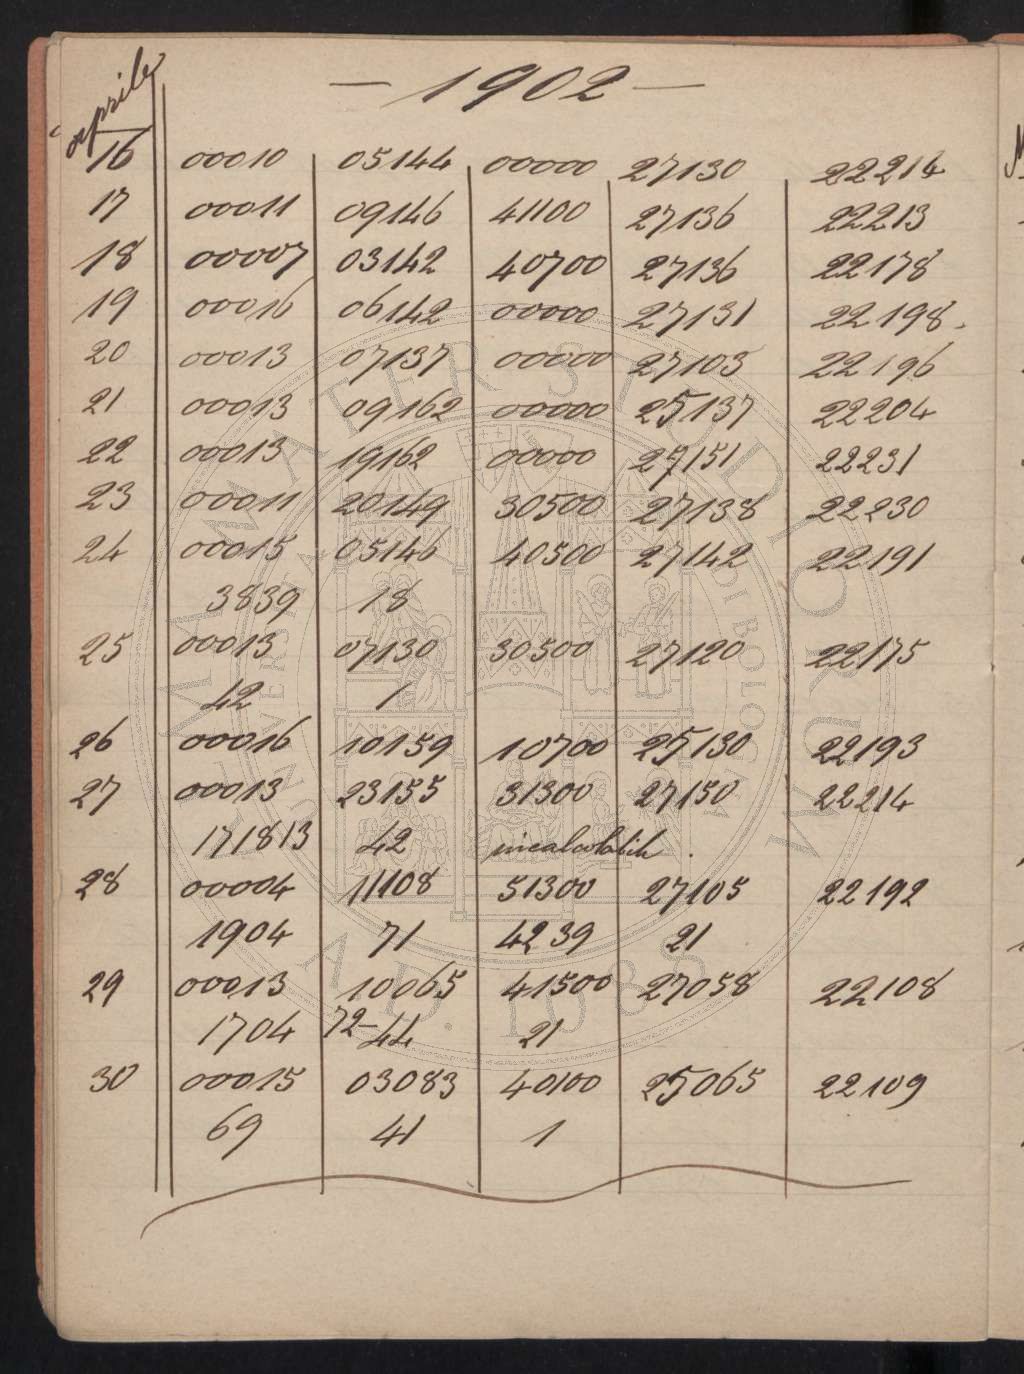 aprile
— 1902 —
16 00010 05144 00000 27130 22214
17 00011 09146 41100 27136 22213
18 00007 03142 40700 27136 22178
19 00016 06142 00000 27131 22198.
20 00013 07137 00000 27103 22196
21 00013 09162 00000 25137 22204
22 00013 19162 00000 27151 22231
23 00011 20149 30500 27138 22230
24 00015 05146 40500 27142 22191
3839 18
25 00013 07130 30500 27120 22175
42 1
26 00016 10159 10700 25130 22193
27 00013 23155 31300 27150 22214
171813 42 incalcolabile.
28 00004 11108 51300 27105 22192
1904 71 4239 21
29 00013 10065 41500 27058 22108
1704 72-44 21
30 00015 03083 40100 25065 22109
69 41 1
ALMA MATER STUDIORUM
A.D. 1088